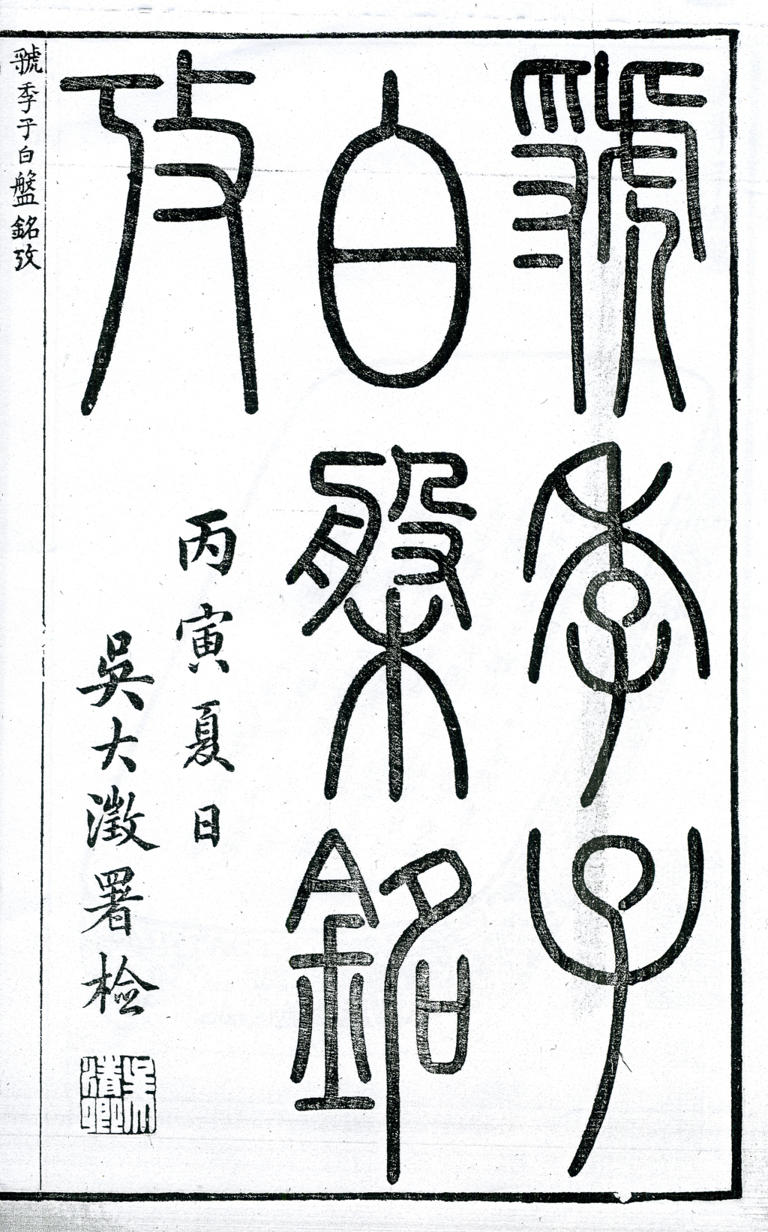 虢季子
白盤銘
攷
丙寅夏日
吳大澂署檢
吳清卿
虢季子白盤銘攷